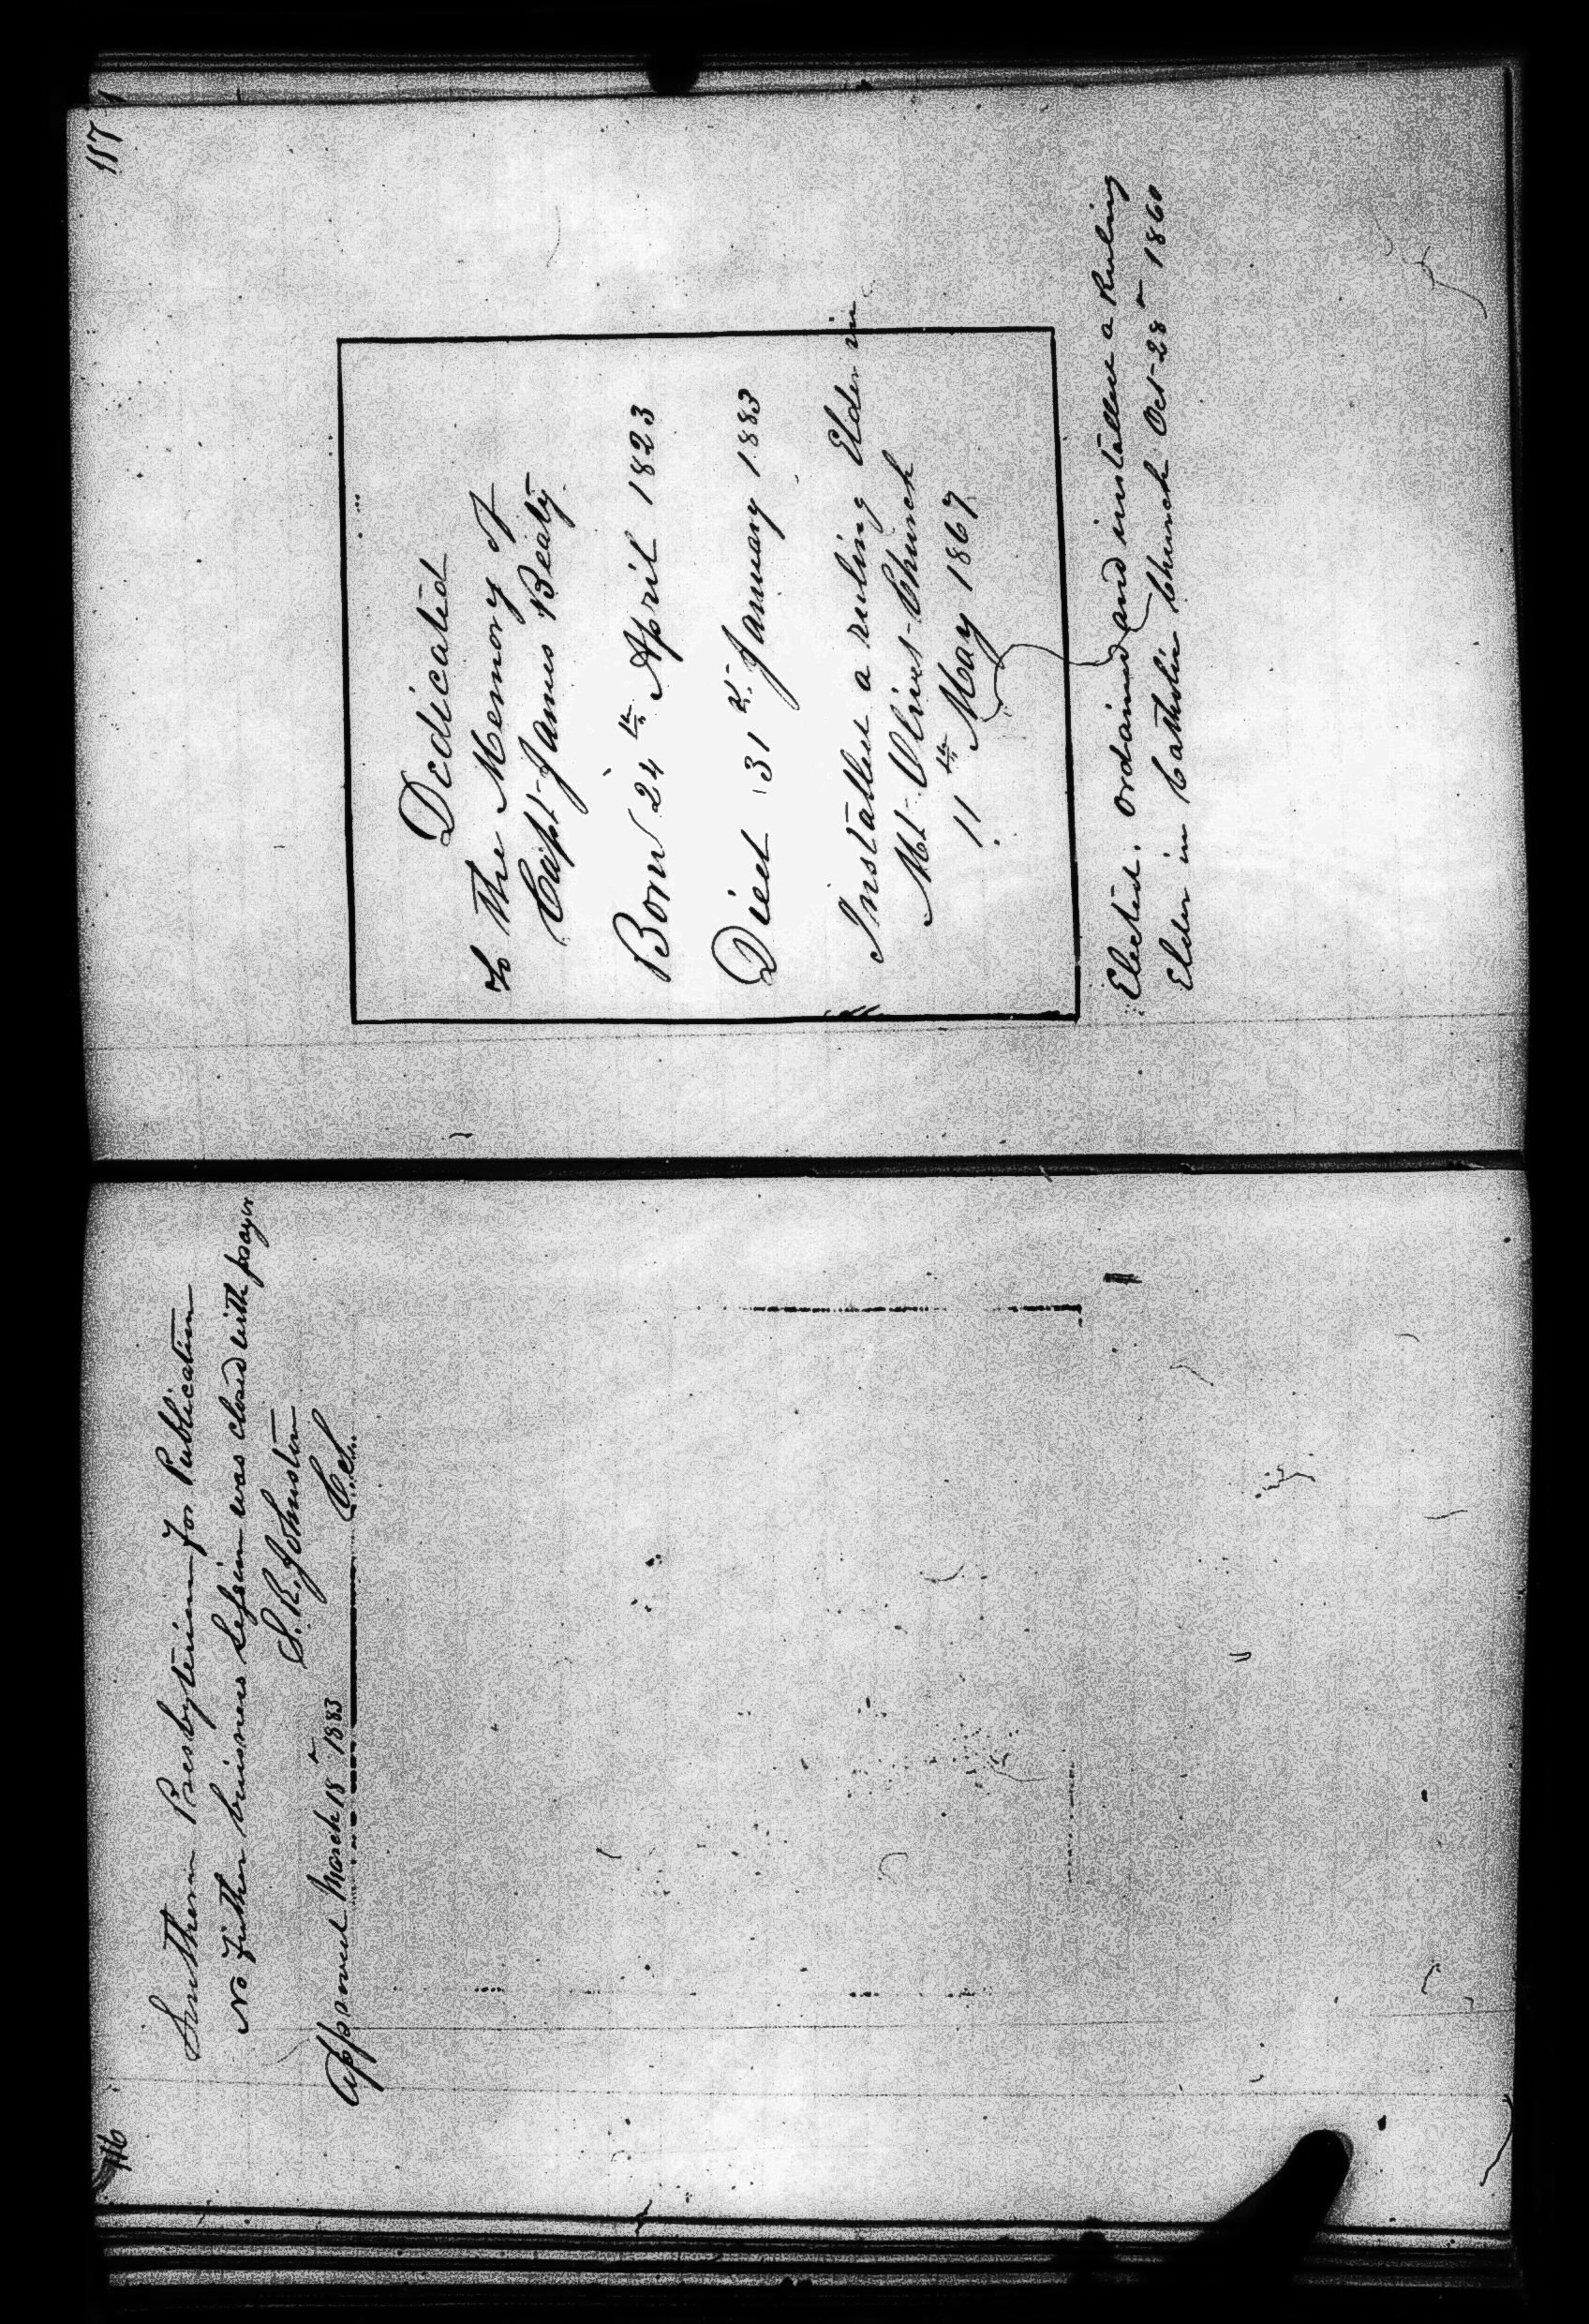 116
Southern Presbyterian for Publication
No further business Session was closed with prayer
S. R. Johnston
Approved March 18th 1883 C.S.
117
Dedicated
To the Memory of
Capt James Beaty
Born 24th April 1823
Died 31st January 1883
Installed a ruling Elder in
Mt Olivet Church
11th May 1867
Elected, ordained and installed a Ruling
Elder in Catholic Church Oct 28th 1860